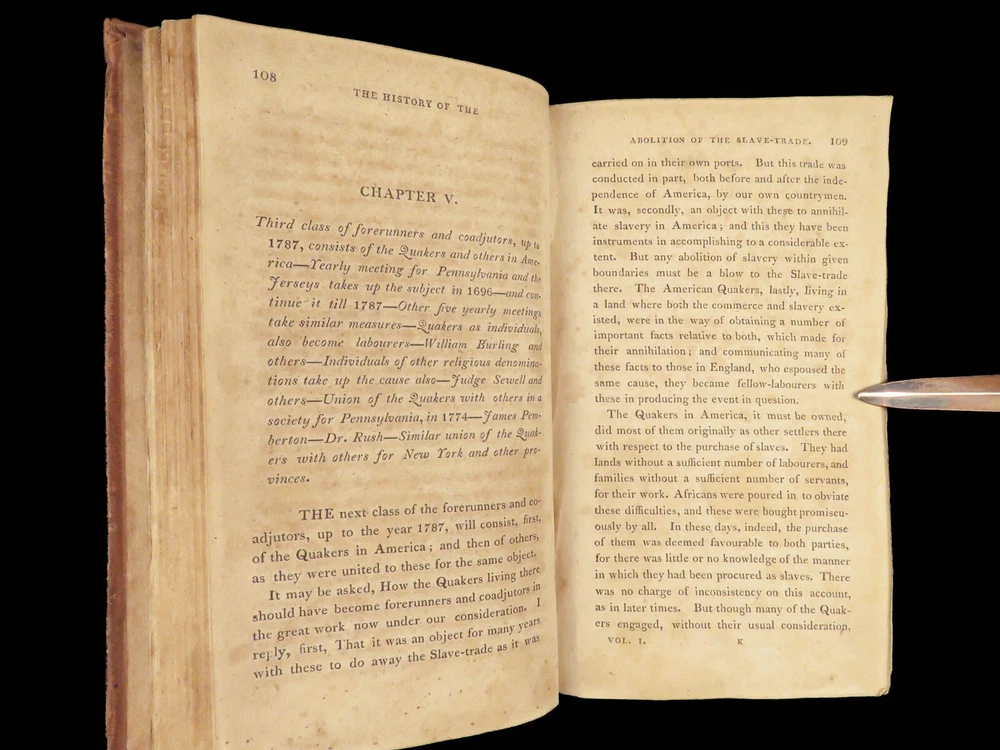 108
THE HISTORY OF THE
CHAPTER V.
Third class of forerunners and coadjutors, up to
1787, consists of the Quakers and others in Ame-
rica—Yearly meeting for Pennsylvania and the
Jerseys takes up the subject in 1696—and con-
tinue it till 1787—Other five yearly meetings
take similar measures—Quakers as individuals,
also become labourers—William Burling and
others—Individuals of other religious denomina-
tions take up the cause also—Judge Sewell and
others—Union of the Quakers with others in a
society for Pennsylvania, in 1774—James Pem-
berton—Dr. Rush—Similar union of the Quak-
ers with others for New York and other pro-
vinces.
THE next class of the forerunners and co-
adjutors, up to the year 1787, will consist, first,
of the Quakers in America; and then of others,
as they were united to these for the same object.
It may be asked, How the Quakers living there
should have become forerunners and coadjutors in
the great work now under our consideration. I
reply, first, That it was an object for many years
with these to do away the Slave-trade as it was
ABOLITION OF THE SLAVE-TRADE. 109
carried on in their own ports. But this trade was
conducted in part, both before and after the inde-
pendence of America, by our own countrymen.
It was, secondly, an object with these to annihil-
ate slavery in America; and this they have been
instruments in accomplishing to a considerable ex-
tent. But any abolition of slavery within given
boundaries must be a blow to the Slave-trade
there. The American Quakers, lastly, living in
a land where both the commerce and slavery ex-
isted, were in the way of obtaining a number of
important facts relative to both, which made for
their annihilation; and communicating many of
these facts to those in England, who espoused the
same cause, they became fellow-labourers with
these in producing the event in question.
The Quakers in America, it must be owned,
did most of them originally as other settlers there
with respect to the purchase of slaves. They had
lands without a sufficient number of labourers, and
families without a sufficient number of servants,
for their work. Africans were poured in to obviate
these difficulties, and these were bought promiscu-
ously by all. In these days, indeed, the purchase
of them was deemed favourable to both parties,
for there was little or no knowledge of the manner
in which they had been procured as slaves. There
was no charge of inconsistency on this account,
as in later times. But though many of the Quak-
ers engaged, without their usual consideration,
VOL. I. K